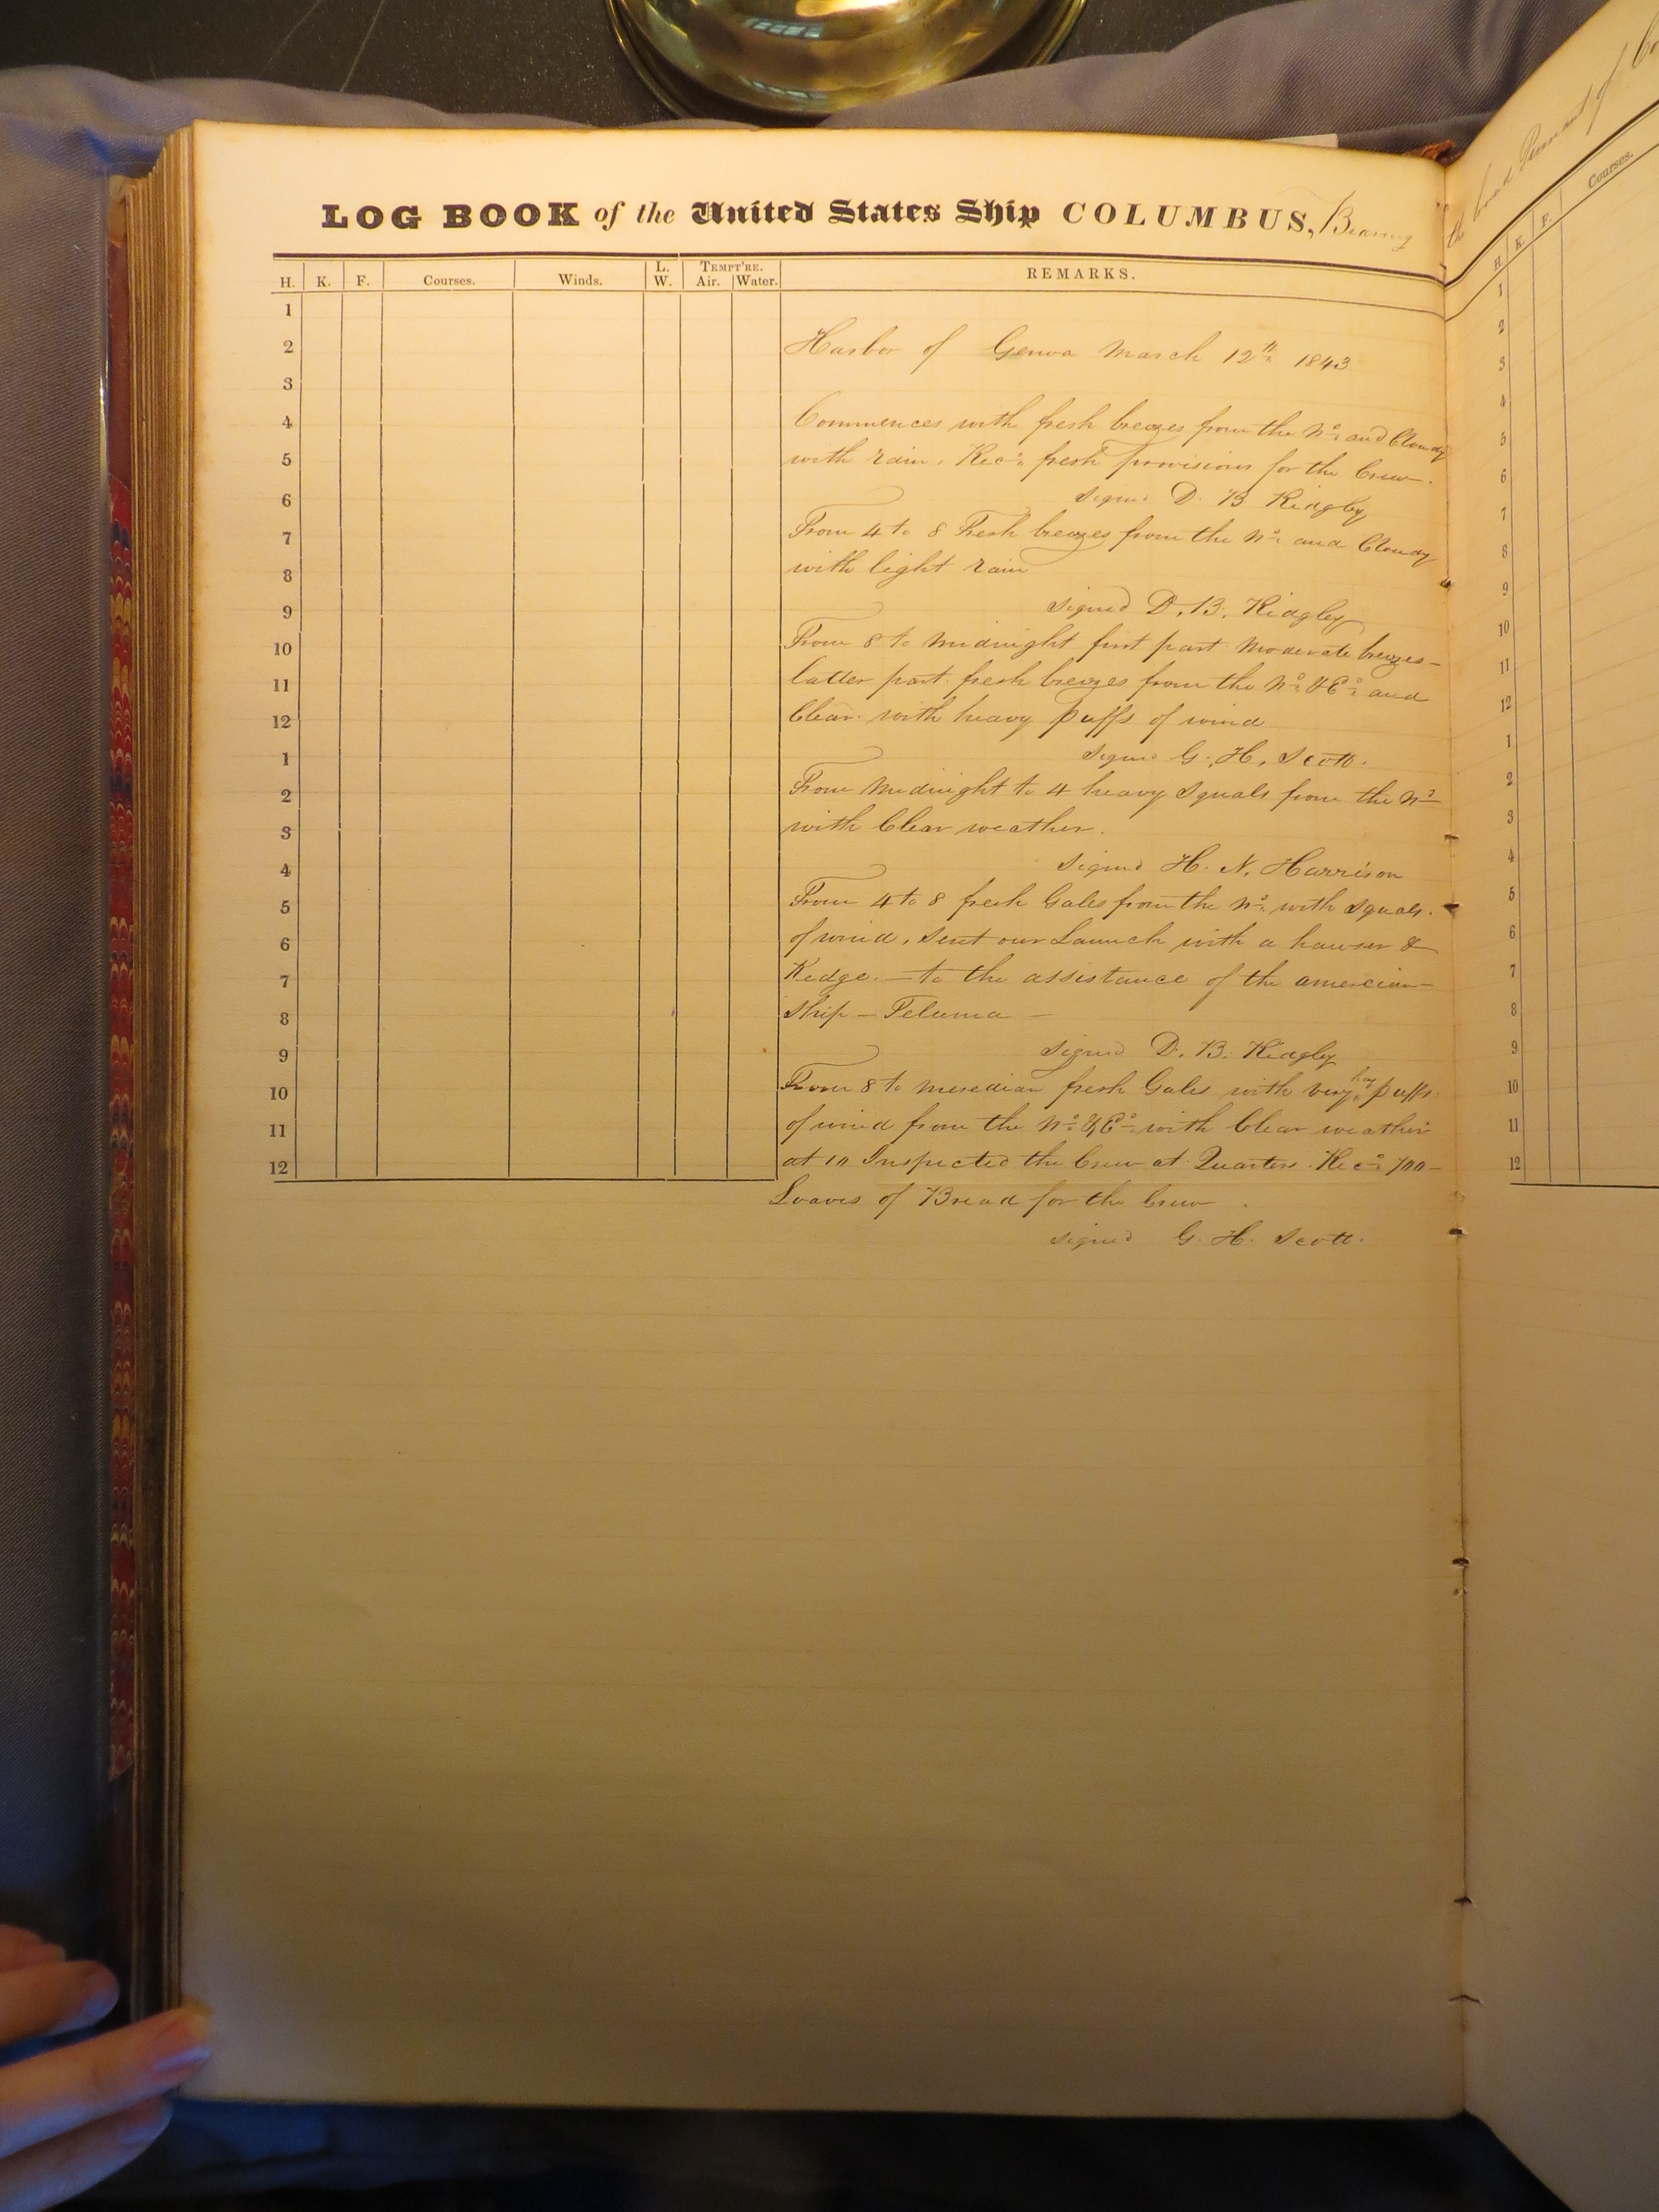 LOG BOOK of the United States Ship COLUMBUS, Bearing
H. K. F. Courses. Winds. L. W. TEMPT'RE. Air. Water. REMARKS.
1
2 Harbor of Genoa March 12th 1843
3
4 Commences with fresh breezes from the No. and Cloudy
5 with rain. Recd. fresh provisions for the Crew.
6 signed D. B Ridgley
7 From 4 to 8 Fresh breezes from the No. and Cloudy
8 with light rain
9 signed D. B. Ridgley
10 From 8 to Midnight first part Moderate breezes–
11 latter part fresh breezes from the No. & Eo. and
12 Clear. with heavy puffs of wind
1 signed G. H. Scott.
2 From Midnight to 4 heavy Squals from the No
3 with Clear weather.
4 signed H. N. Harrison
5 From 4 to 8 fresh Gales from the No. with squals.
6 of wind, sent our Launch with a hawser &
7 Kedge.– to the assistance of the amercian–
8 ship – Teluma –
9 signed D. B. Ridgley
10 From 8 to meredian fresh Gales with very hvy puffs
11 of wind from the No. & Eo. with Clear weather
12 at 10 Inspected the Crew at Quarters. Recd. 700–
Loaves of Bread for the Crew.
signed G. H. Scott.
the broad Pennant of
H. K. F. Courses.
1
2
3
4
5
6
7
8
9
10
11
12
1
2
3
4
5
6
7
8
9
10
11
12